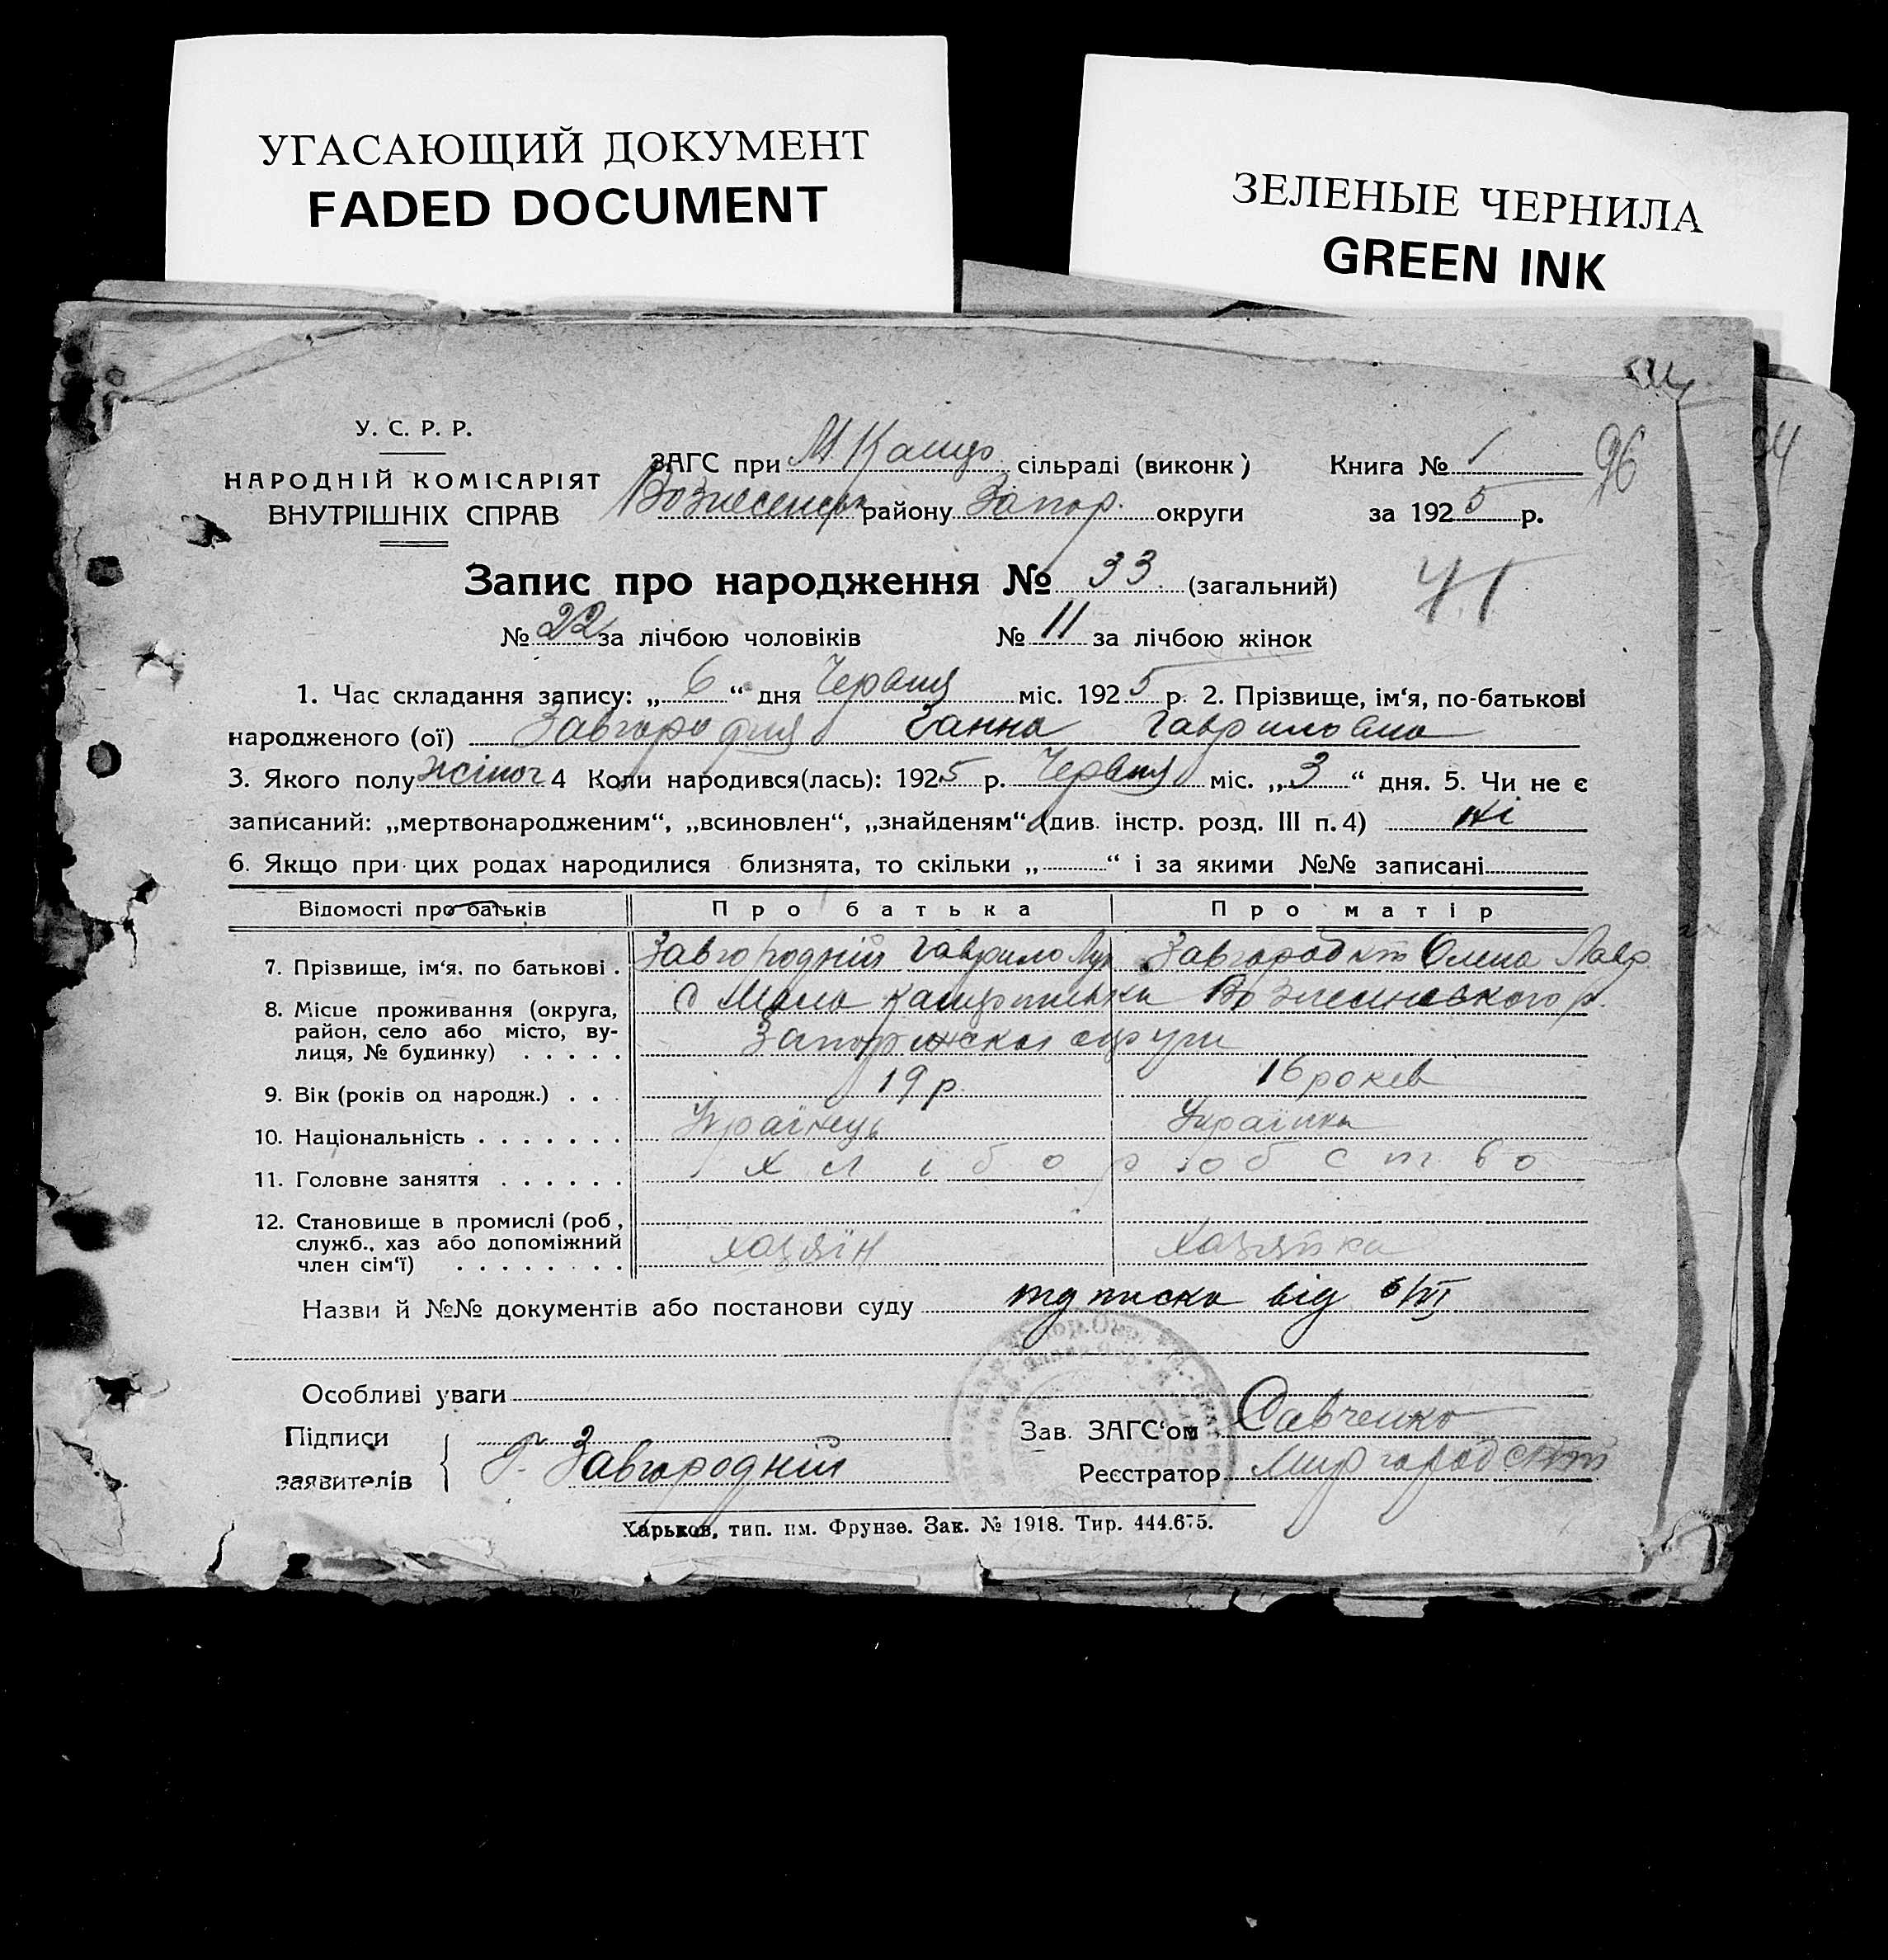 УГАСАЮЩИЙ ДОКУМЕНТ
FADED DOCUMENT
ЗЕЛЕНЫЕ ЧЕРНИЛА
GREEN INK
96
У. С. Р. Р.
НАРОДНІЙ КОМІСАРІЯТ
ВНУТРІШНІХ СПРАВ
ЗАГС при М Кащр сільраді (виконк) Книга № 1
Вознесенськ району Запор. округи за 1925 р.
Запис про народження № 33 (загальний)
№ 22 за лічбою чоловіків № 11 за лічбою жінок
1. Час складання запису: „ 6 “ дня Червня міс. 1925 р. 2. Прізвище, ім‘я, по-батькові
народженого (ої) Завгородня Ганна Гавриловна
3. Якого полу жіноч 4 Коли народився(лась): 1925 р. Червня міс. „ 3 “ дня. 5. Чи не є
записаний: „мертвонародженим“, „всиновлен“, „знайденям“ (див. інстр. розд. III п. 4) ні
6. Якщо при цих родах народилися близнята, то скільки „ “ і за якими №№ записані
Відомості про батьків Про батька Про матір
7. Прізвище, ім‘я. по батькові . Завгородній Гаврило Лук Олена Лавр
8. Місце проживання (округа, с Мала Вознесенського р.
район, село або місто, ву-
лиця, № будинку) . . . . . округи
9. Вік (років од народж.) . . . 19 р. 16 роков
10. Національність . . . . . . . Українець Українка
11. Головне заняття . . . . . . хліборобство
12. Становище в промислі (роб,
служб., хаз або допоміжний хазяїн хазяйка
член сім‘ї) . . . . . . . .
Назви й №№ документів або постанови суду підписка від 6/VI
Особливі уваги
Підписи Зав. ЗАГС‘ом Савченко
заявителів Г. Завгородній Реєстратор
Харьков, тип. им. Фрунзе. Зак. № 1918. Тир. 444.675.